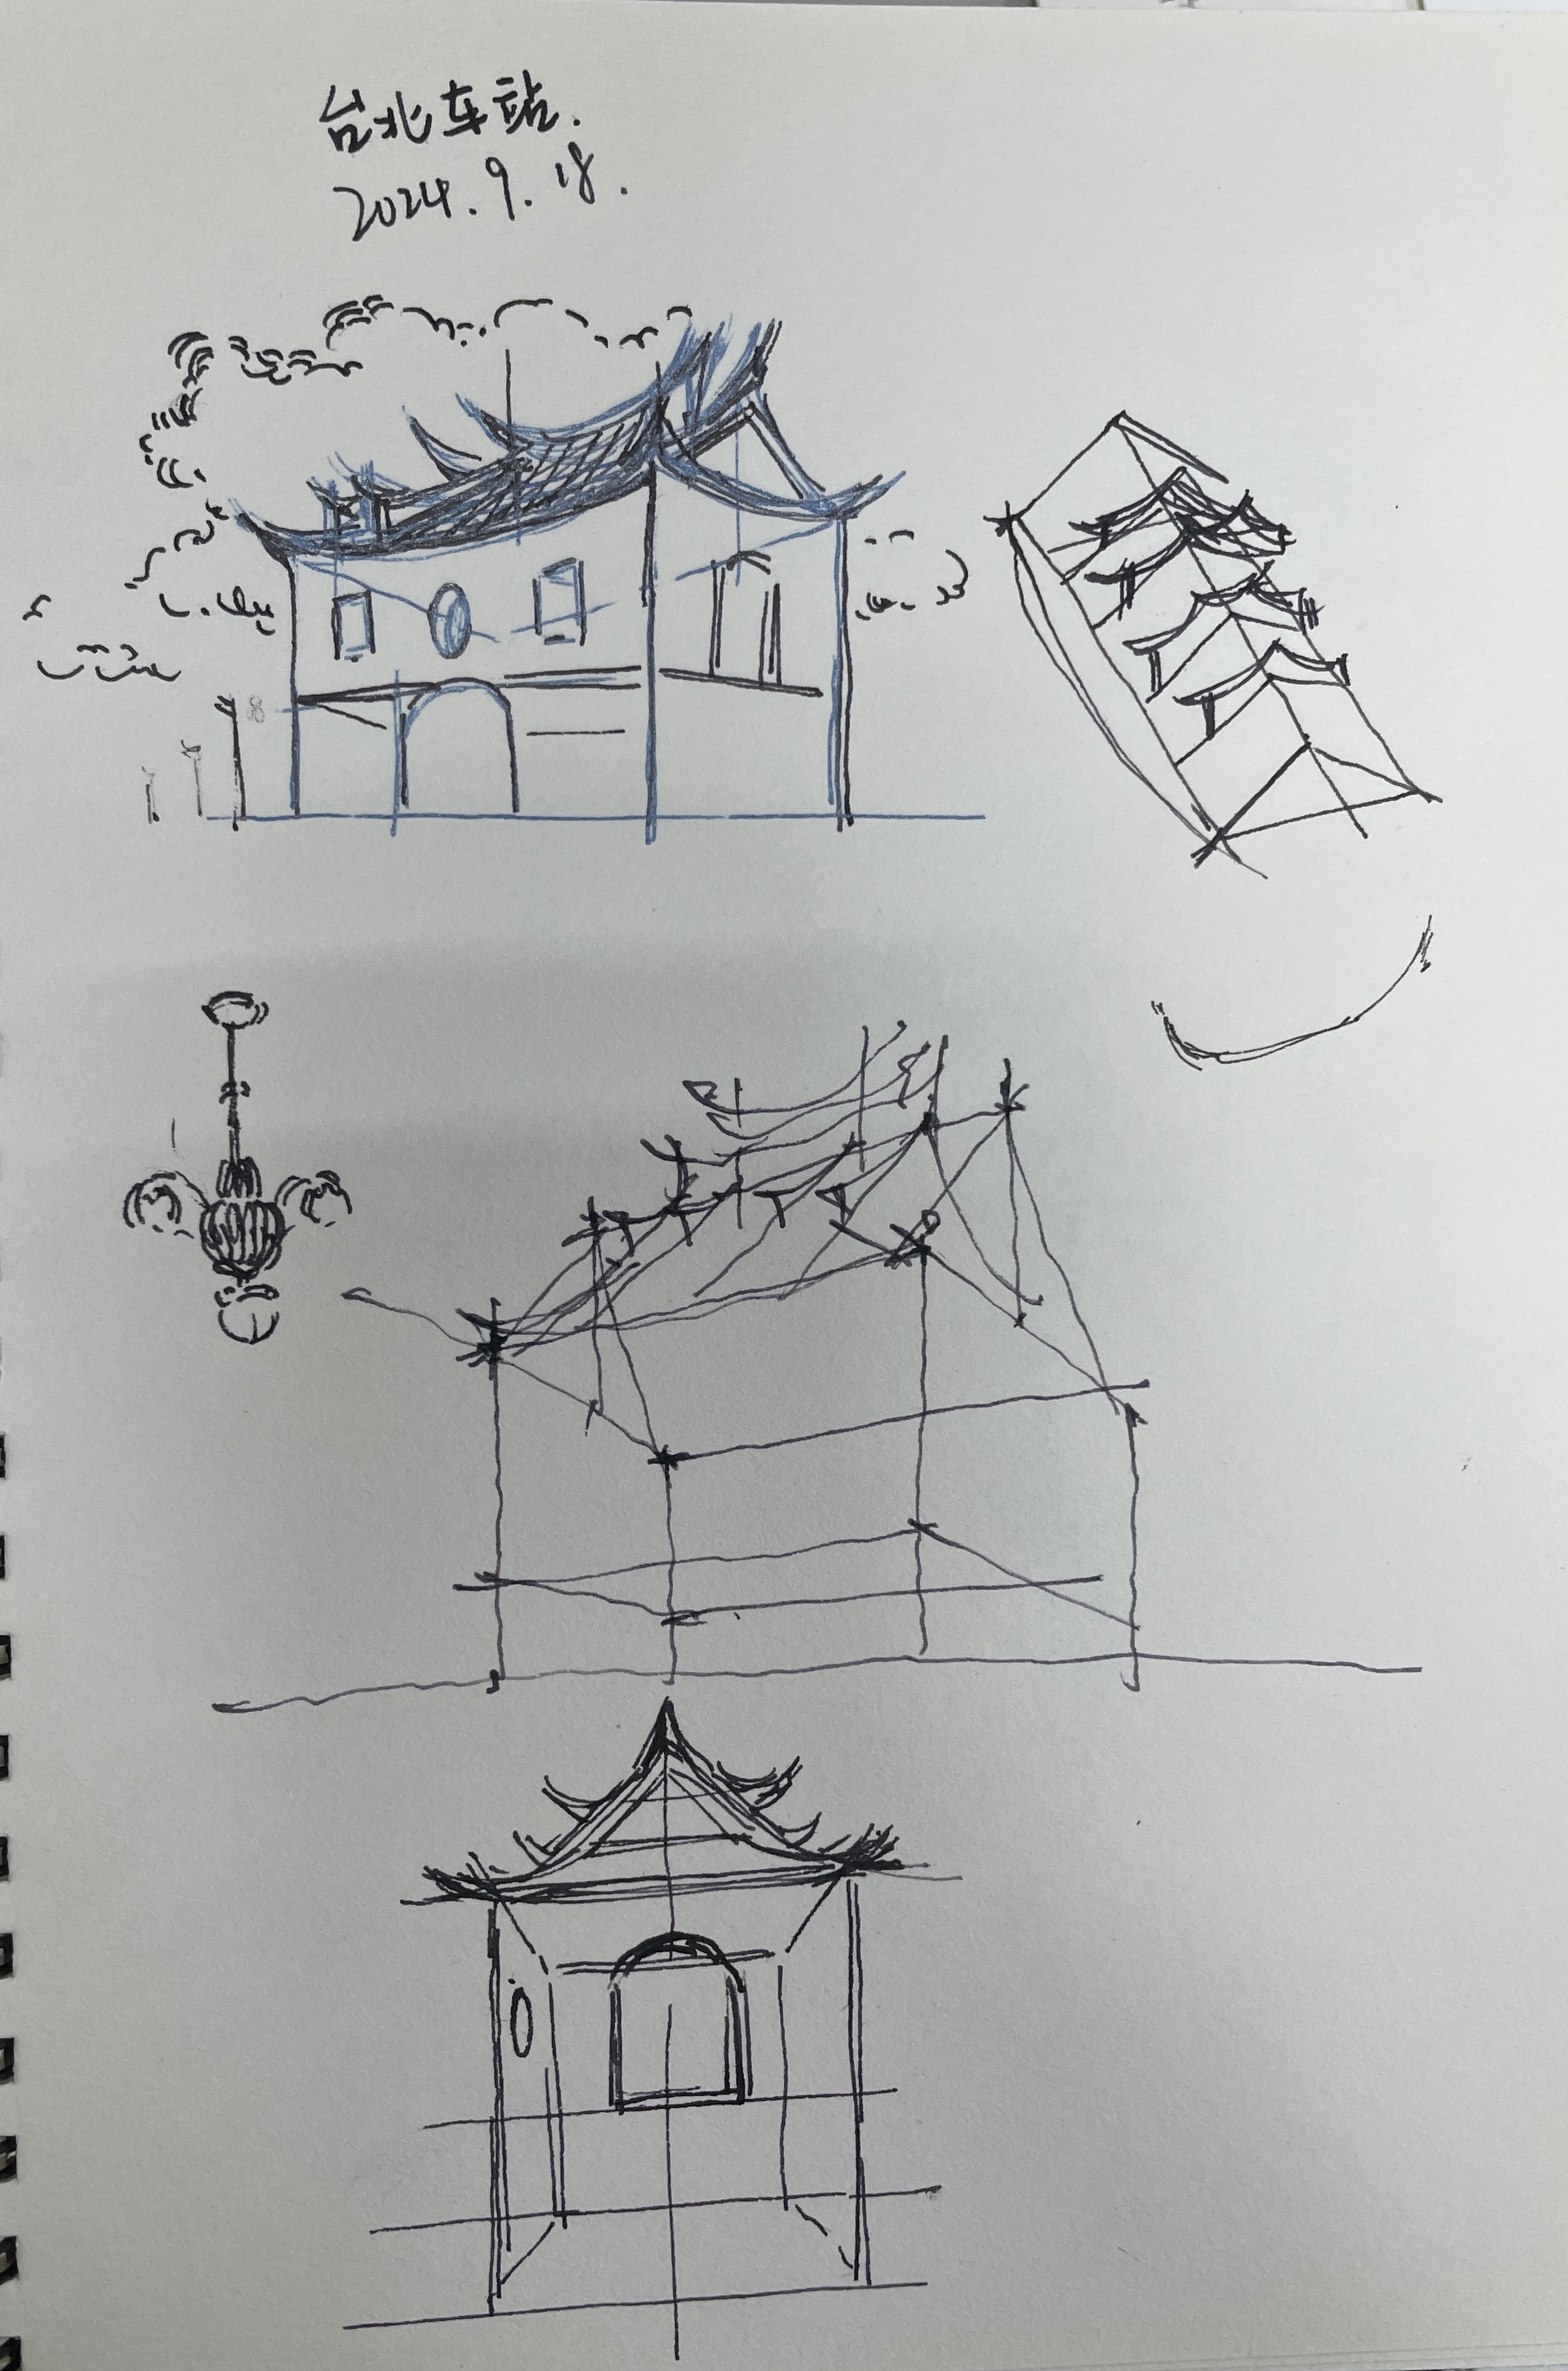 台北车站.
2024.9.18.